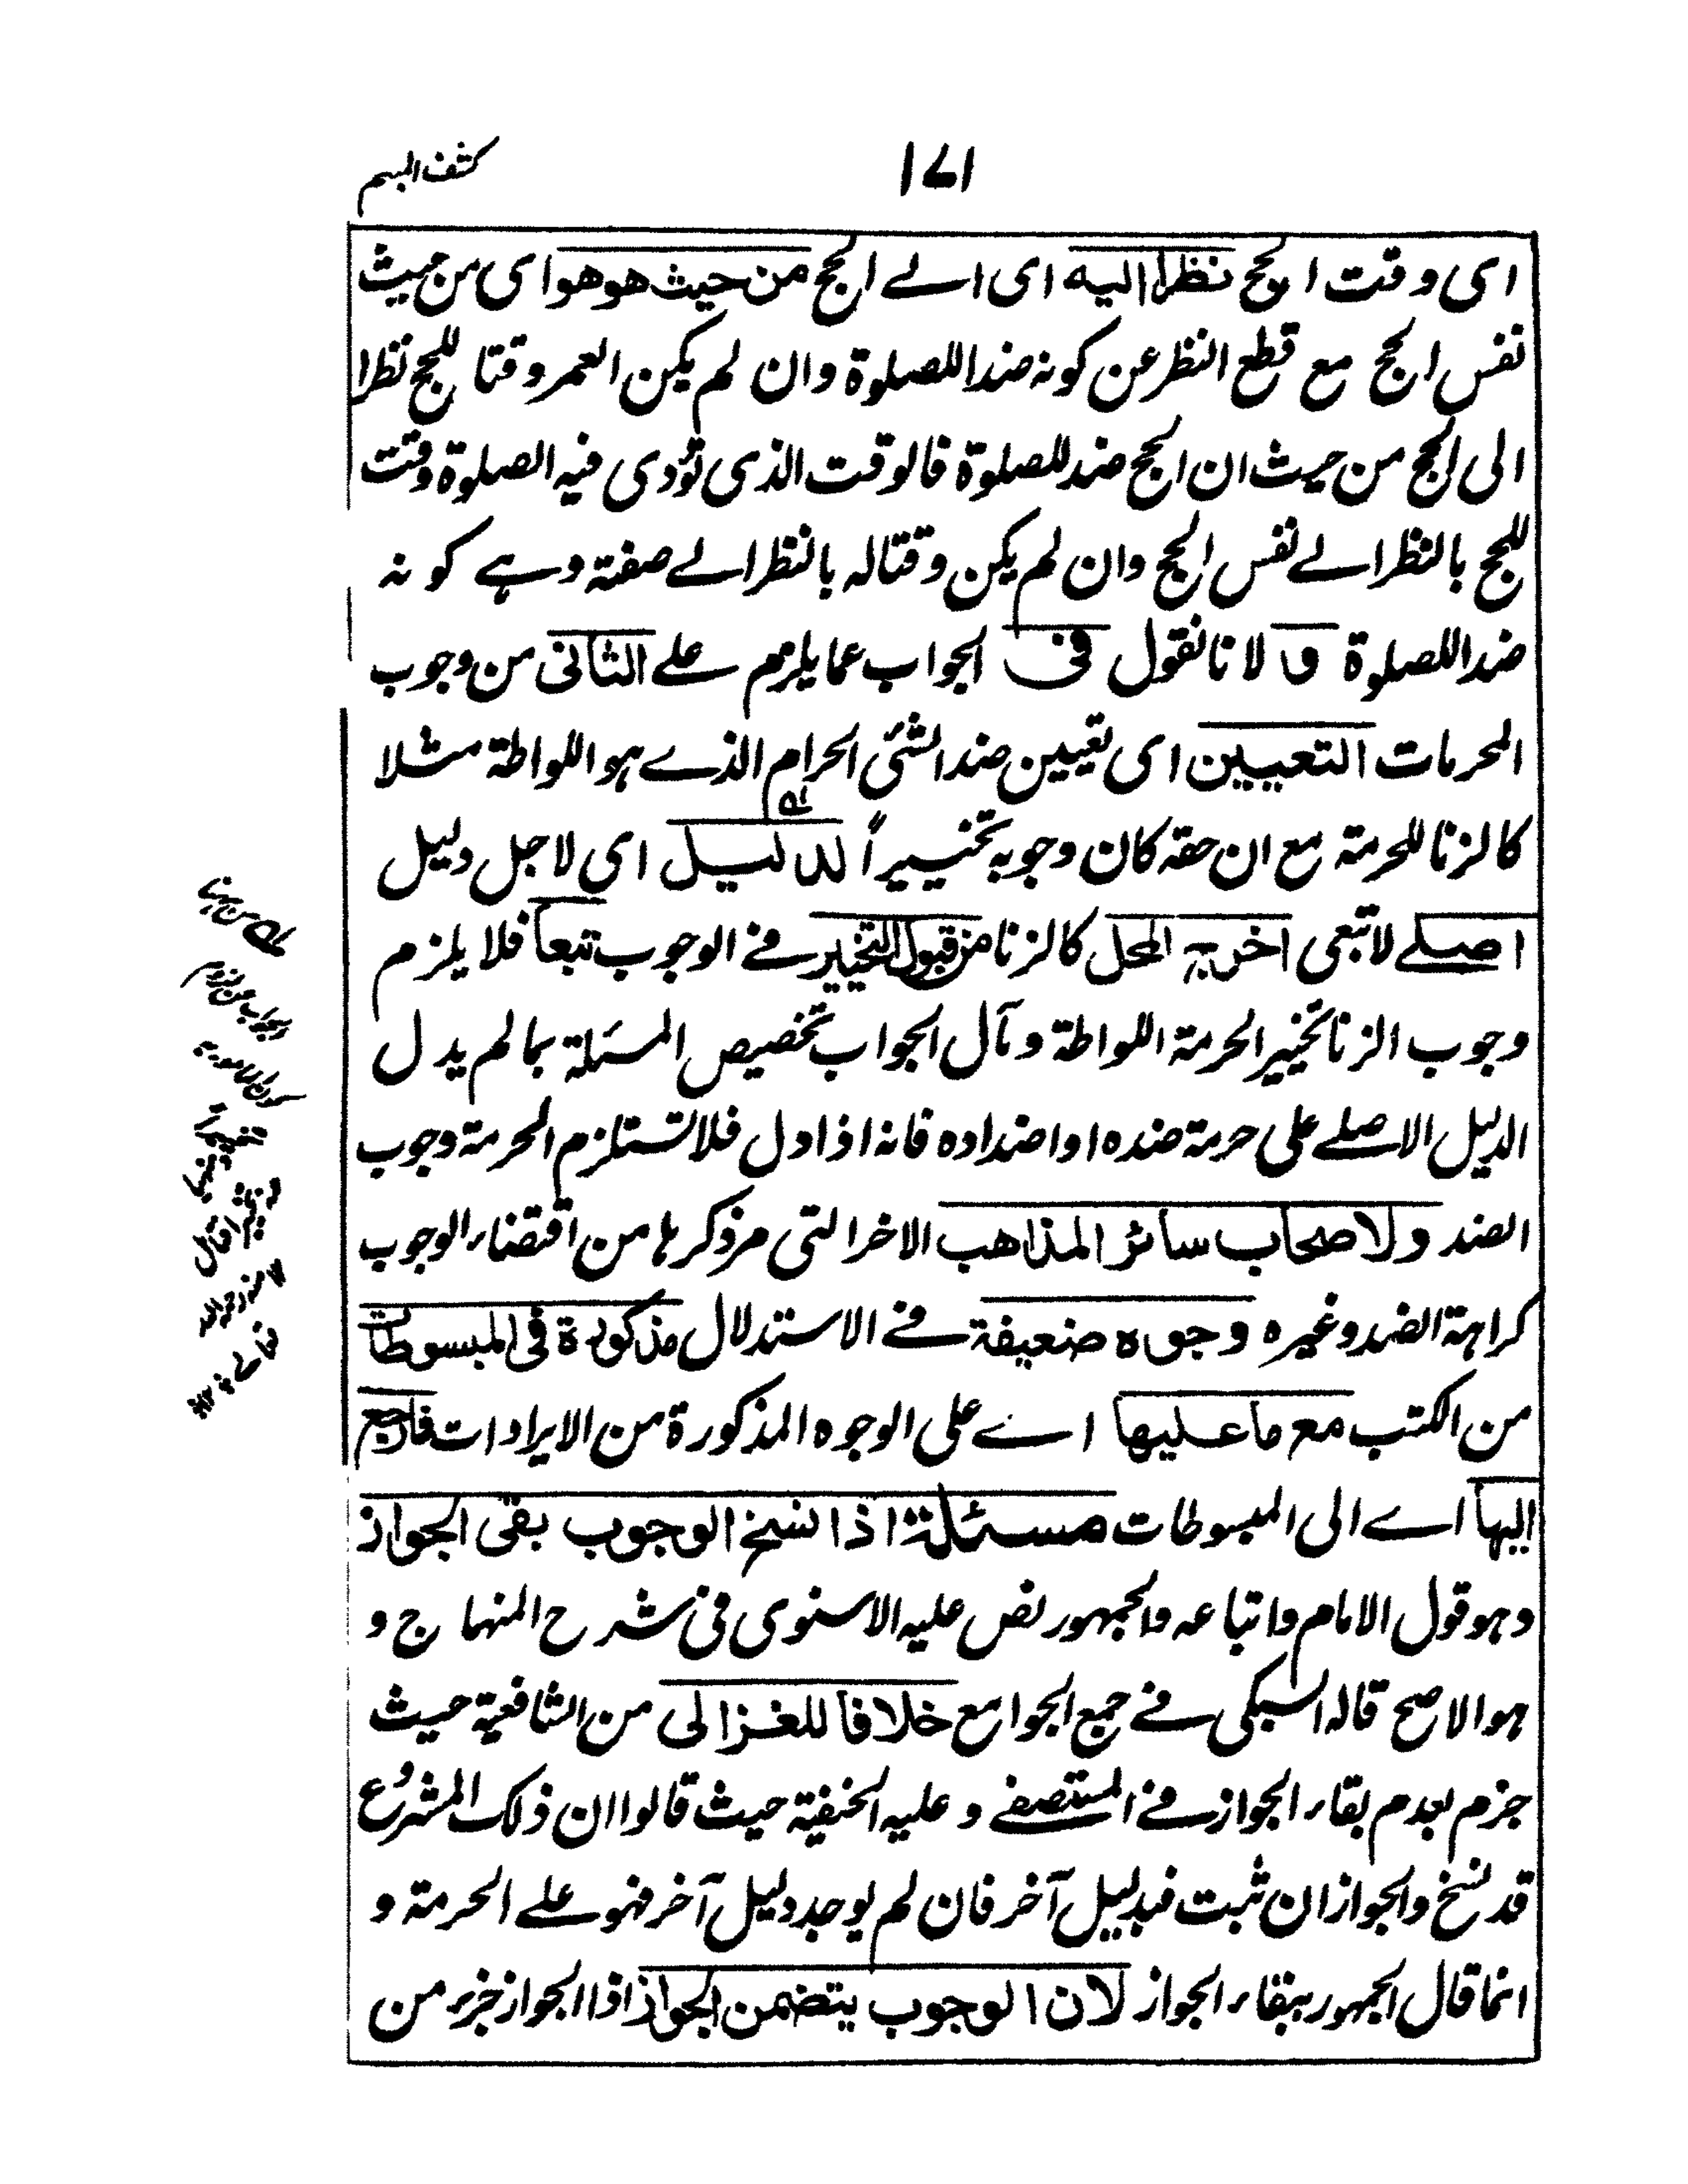 ۱۷۱
كشف المبهم
اى وقت الحج نظرا اليه اى الے الحج من حيث هو هو اى من حيث
نفس الحج مع قطع النظر عن كونه ضدا للصلوة وان لم يكن العمر وقتا للحج نظرا
الى الحج من حيث ان الحج ضد للصلوة فالوقت الذى تؤدى فيه الصلوة وقت
للحج بالنظر الے نفس الحج وان لم يكن وقتا له بالنظر الے صفته وہے كونه
ضدا للصلوة و لانا نقول فى الجواب عما يلزم علے الثانى من وجوب
المحرمات التعيين اى تعيين ضد الشئى الحرام الذے هو اللواطة مثلا
كالزنا للحرمة مع ان حقه كان وجوبه تخييراً لدليل اى لاجل دليل
اصلے لا تبعى اخرج المحل كالزنا من قبول التخيير فے الوجوب تبعا فلا يلزم
وجوب الزنا تخيير الحرمة اللواطة ومآل الجواب تخصيص المسئلة بما لم يدل
الدليل الاصلے على حرمة ضده او اضداده فانه اذا دل فلا تستلزم الحرمة وجوب
الضد ولاصحاب سائر المذاهب الاخر التى مر ذكرها من اقتضاء الوجوب
كراهة الضد وغيره وجوه ضعيفة فے الاستدلال مذكورة فى المبسوطات
من الكتب مع ما عليها اے على الوجوه المذكورة من الايرادات فارجع
اليها اے الى المبسوطات مسئلة اذا نسخ الوجوب بقى الجواز
وهو قول الامام واتباعه والجمهور نص عليه الاسنوى فى شرح المنهاج و
هو الاصح قاله السبكى فے جمع الجوامع خلافا للغزالى من الشافعية حيث
جزم بعدم بقاء الجواز فے المستصفے و عليه الحنفية حيث قالوا ان ذلك المشروع
قد نسخ والجواز ان ثبت فبدليل آخر فان لم يوجد دليل آخر فهو علے الحرمة و
انما قال الجمهور ببقاء الجواز لان الوجوب يتضمن الجواز اذ الجواز جزء من